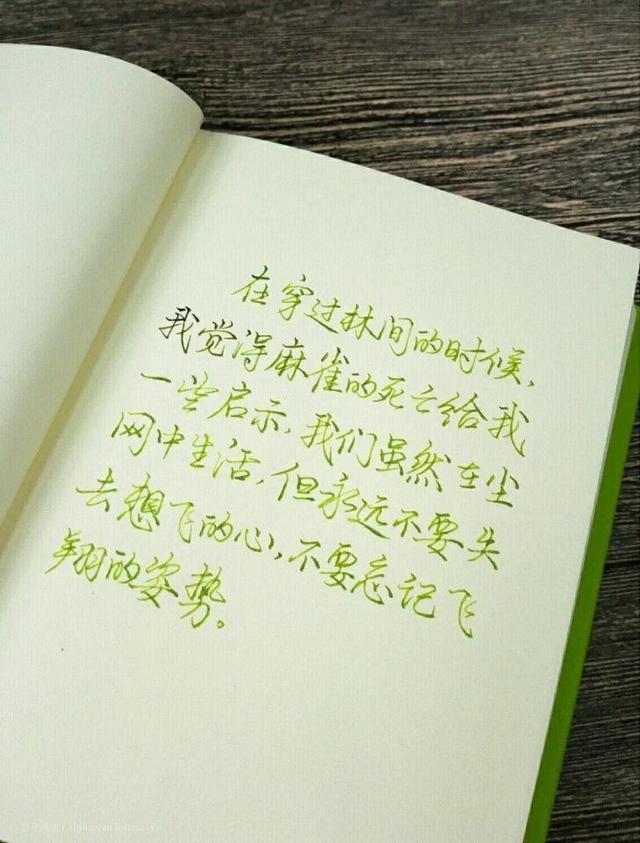 在穿过林间的时候,
我觉得麻雀的死亡给我
一些启示,我们虽然在尘
网中生活,但永远不要失
去想飞的心,不要忘记飞
翔的姿势。